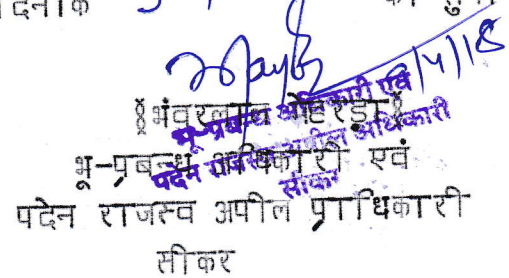 दिनांक को सुना
3/4/18
§भंवरलाल मेहरड़ा§
भू-प्रबन्ध अधिकारी एवं
पदेन राजस्व अपील प्राधिकारी
सीकर
भू-प्रबन्ध अधिकारी एवं
पदेन राजस्व अपील अधिकारी
सीकर